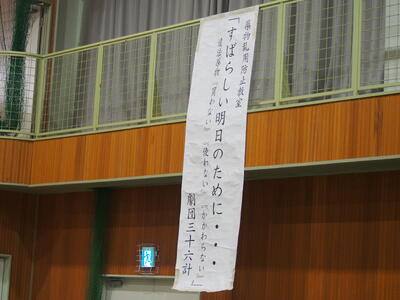 薬物乱用防止教室
「すばらしい明日のために・・・
違法薬物『買わない』『使わない』『かかわらない』」
劇団三十六計